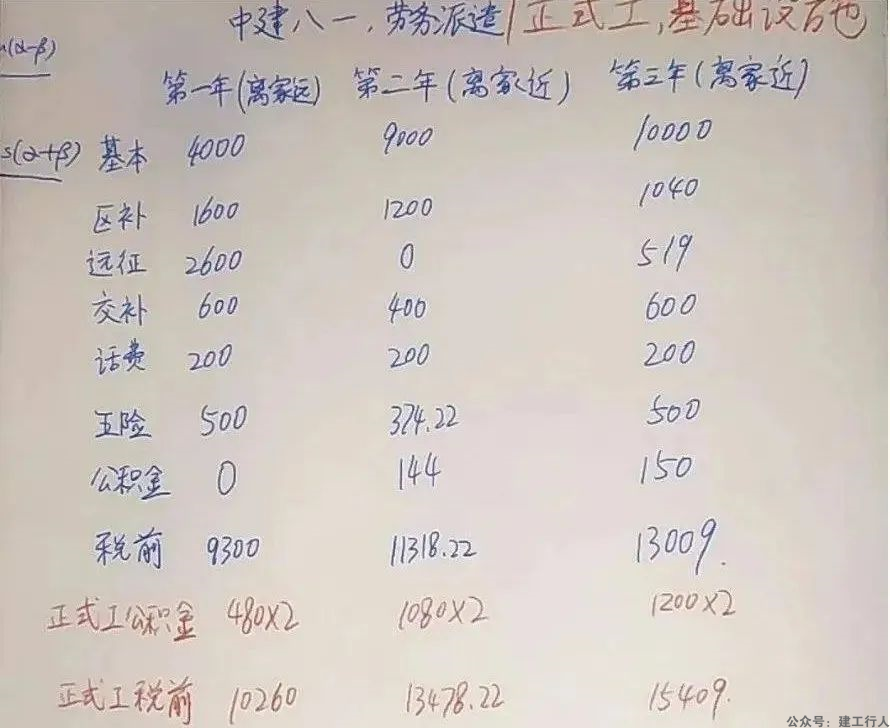 中建八一,劳务派遣/正式工,基础设施也
(α-β)
第一年(离家远) 第二年(离家近) 第三年(离家近)
s(α+β)
基本 4000 9000 10000
区补 1600 1200 1040
远征 2600 0 519
交补 600 400 600
话费 200 200 200
五险 500 374.22 500
公积金 0 144 150
税前 9300 11318.22 13009.
正式工公积金 480×2 1080×2 1200×2
正式工税前 10260 13478.22 15409.
公众号:建工行人